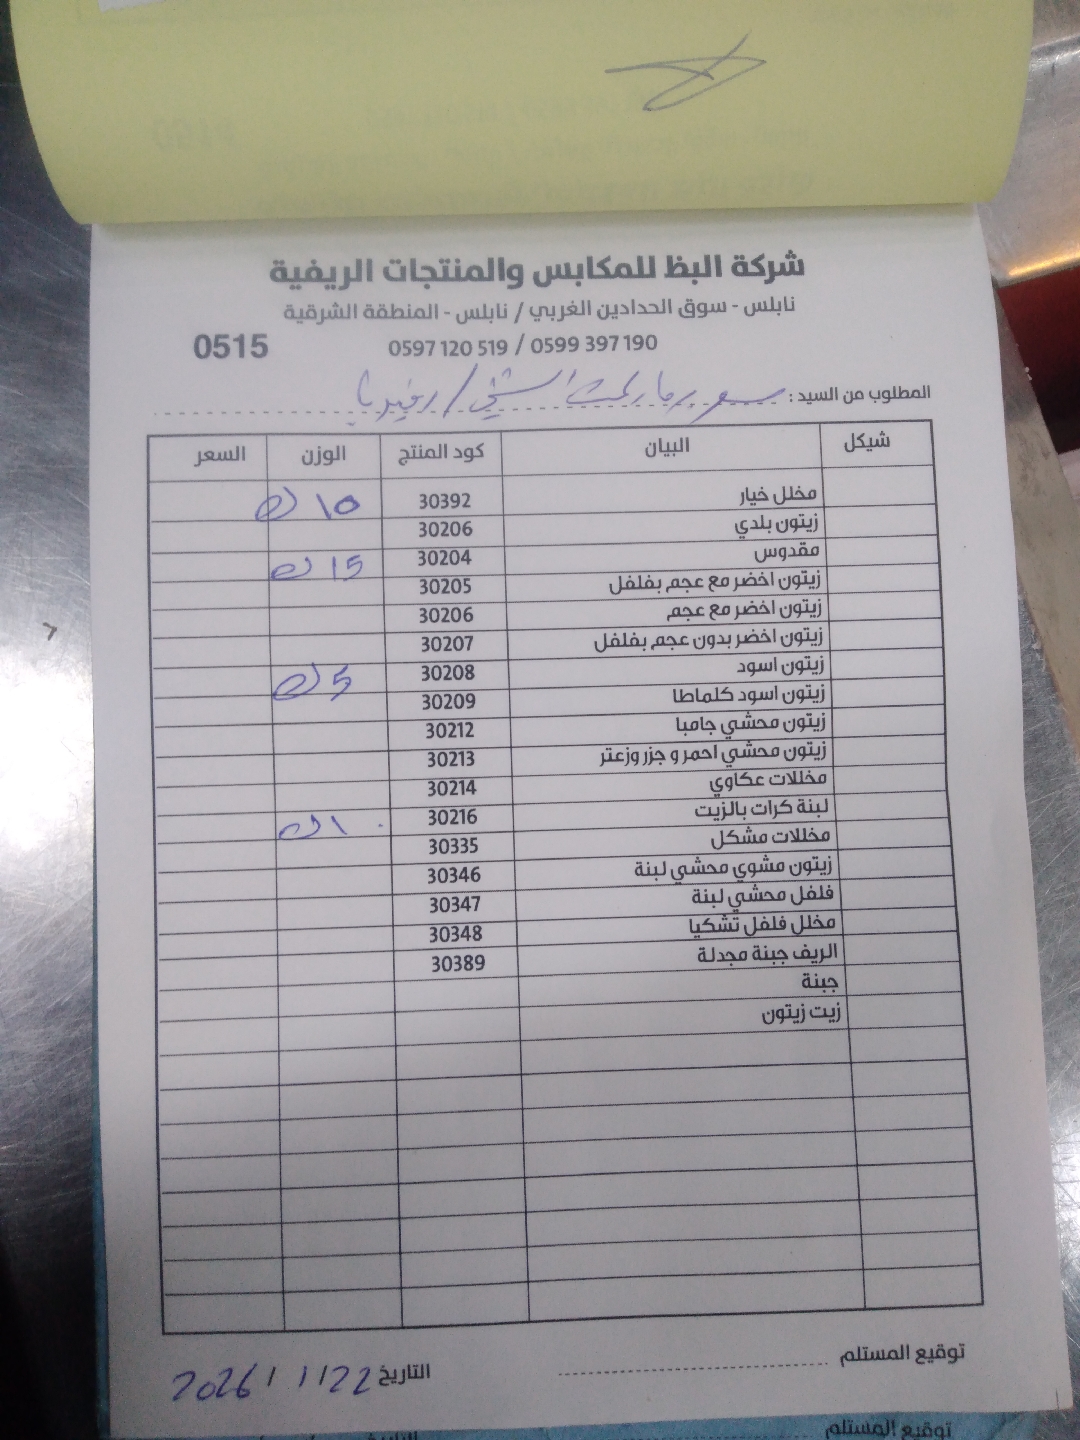 شركة البظ للمكابس والمنتجات الريفية
نابلس - سوق الحدادين الغربي / نابلس - المنطقة الشرقية
0597 120 519 / 0599 397 190
0515
المطلوب من السيد : سوبر ماركت / رفيديا
شيكل البيان كود المنتج الوزن السعر
مخلل خيار 30392 10 ك
زيتون بلدي 30206
مقدوس 30204 15 ك
زيتون اخضر مع عجم بفلفل 30205
زيتون اخضر مع عجم 30206
زيتون اخضر بدون عجم بفلفل 30207
زيتون اسود 30208 5 ك
زيتون اسود كلماطا 30209
زيتون محشي جامبا 30212
زيتون محشي احمر و جزر وزعتر 30213
مخللات عكاوي 30214
لبنة كرات بالزيت 30216 1 ك
مخللات مشكل 30335
زيتون مشوي محشي لبنة 30346
فلفل محشي لبنة 30347
مخلل فلفل تشكيا 30348
الريف جبنة مجدلة 30389
جبنة
زيت زيتون
توقيع المستلم
التاريخ 22 / 1 / 2026
توقيع المستلم